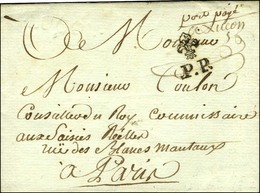 port payé
A Monsieur
P.P.
Monsieur Toulon
Conseiller du Roy Commissaire
aux Saisies Réelles
rüe des Blancs manteaux
à Paris